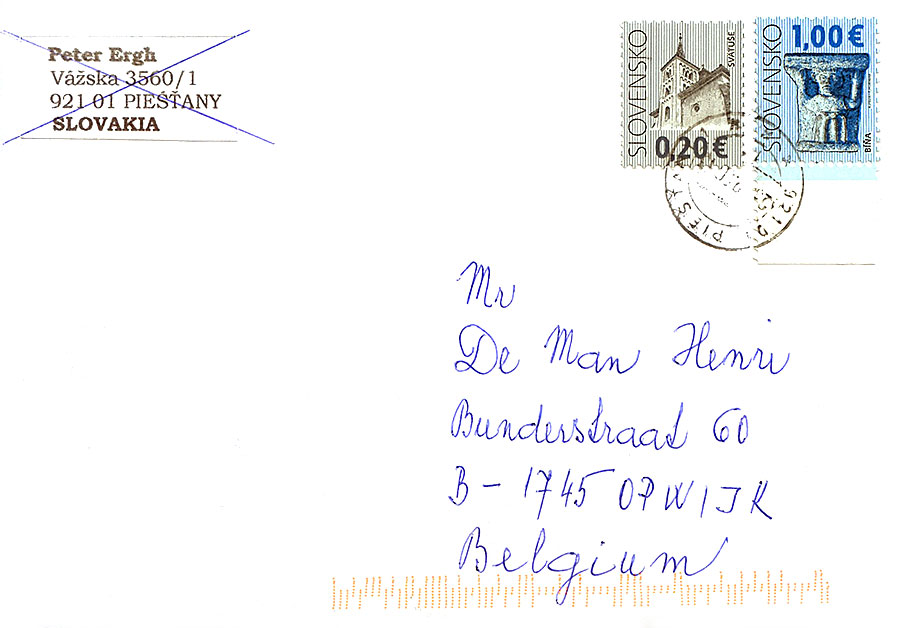 Peter Ergh
Vážska 3560/1
921 01 PIEŠŤANY
SLOVAKIA
SLOVENSKO
SVÄTUŠE
0,20 €
SLOVENSKO
1,00 €
BÍŇA
Mr
De Man Henri
Bunderstraat 60
B - 1745 OPWIJK
Belgium